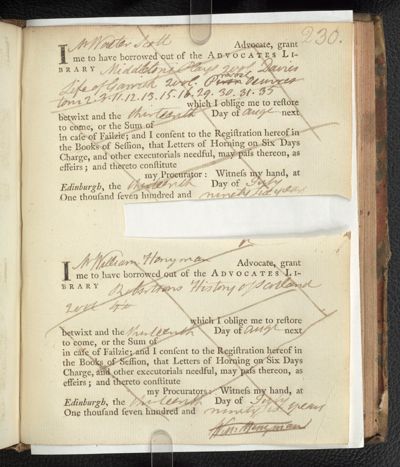 230.
I Mr Walter Scott Advocate, grant
me to have borrowed out of the ADVOCATES LI-
BRARY Middletons Plays 2 vol Davies
Life of Garrick 2 vol. Oeuvres
tom 2. 3. 11. 12. 13. 15. 16. 29. 30. 31. 35
which I oblige me to restore
betwixt and the thirteenth Day of augt next
to come, or the Sum of
in case of Failzie; and I consent to the Registration hereof in
the Books of Session, that Letters of Horning on Six Days
Charge, and other executorials needful, may pass thereon, as
effeirs; and thereto constitute
my Procurator: Witness my hand, at
Edinburgh, the thirteenth Day of July
One thousand seven hundred and ninety six years
I Mr William Honyman Advocate, grant
me to have borrowed out of the ADVOCATES LI-
BRARY Robertsons History of Scotland
2 vol 4to
which I oblige me to restore
betwixt and the thirteenth Day of augt next
to come, or the Sum of
in case of Failzie; and I consent to the Registration hereof in
the Books of Session, that Letters of Horning on Six Days
Charge, and other executorials needful, may pass thereon, as
effeirs; and thereto constitute
my Procurator: Witness my hand, at
Edinburgh, the thirteenth Day of July
One thousand seven hundred and ninety six years
Wm Honyman